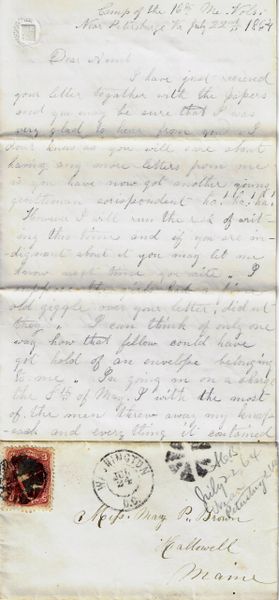 Camp of the 16th Me. Vols.
Near Petersburg Va July 22nd 1864
Dear Aunt
I have just recieved
your letter together with the papers
and you may be sure that I was
very glad to hear from you. I
dont know as you will care about
having any more letters from me
as you have now got another young
gentleman corespondent ha. ha. ha.
However I will run the risk of writ-
ing this time and if you are in-
dignant about it you may let me
know next time you write. I
suppose the girls had a
old giggle over your letter, did nt
they. I can think of only one
way how that fellow could have
got hold of an envelope belonging
to me. In going in on a charge
the 5th of May, I with the most
of the men threw away my knap-
sack and everything it contained
WASHINGTON
JUL
24
D.C.
July 22 64
near
Petersburg Va
Miss Mary P. Brown
Hallowell
Maine